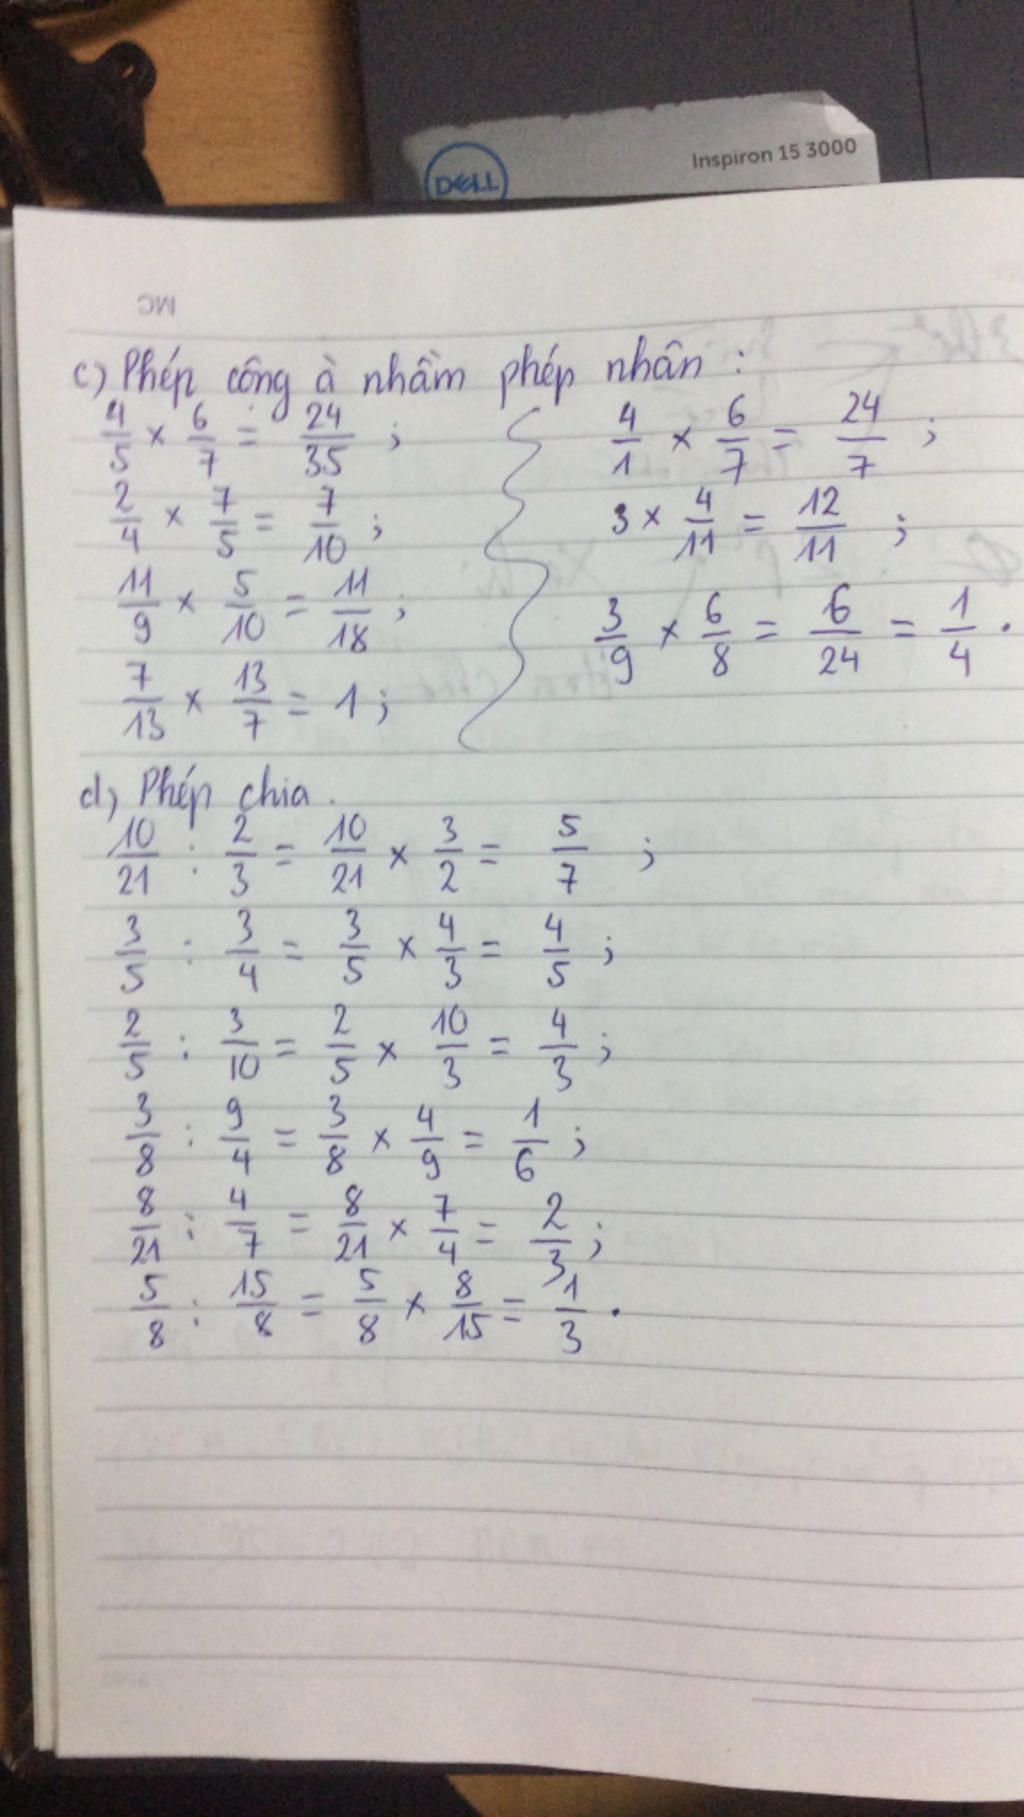 Inspiron 15 3000
DELL
MC
c) Phép công à nhầm phép nhân :
4/5 × 6/7 = 24/35 ;
2/4 × 7/5 = 7/10 ;
11/9 × 5/10 = 11/18 ;
7/13 × 13/7 = 1 ;
4/1 × 6/7 = 24/7 ;
3 × 4/11 = 12/11 ;
3/9 × 6/8 = 6/24 = 1/4 .
d) Phép chia .
10/21 : 2/3 = 10/21 × 3/2 = 5/7 ;
3/5 : 3/4 = 3/5 × 4/3 = 4/5 ;
2/5 : 3/10 = 2/5 × 10/3 = 4/3 ;
3/8 : 9/4 = 3/8 × 4/9 = 1/6 ;
8/21 : 4/7 = 8/21 × 7/4 = 2/3 ;
5/8 : 15/8 = 5/8 × 8/15 = 1/3 .